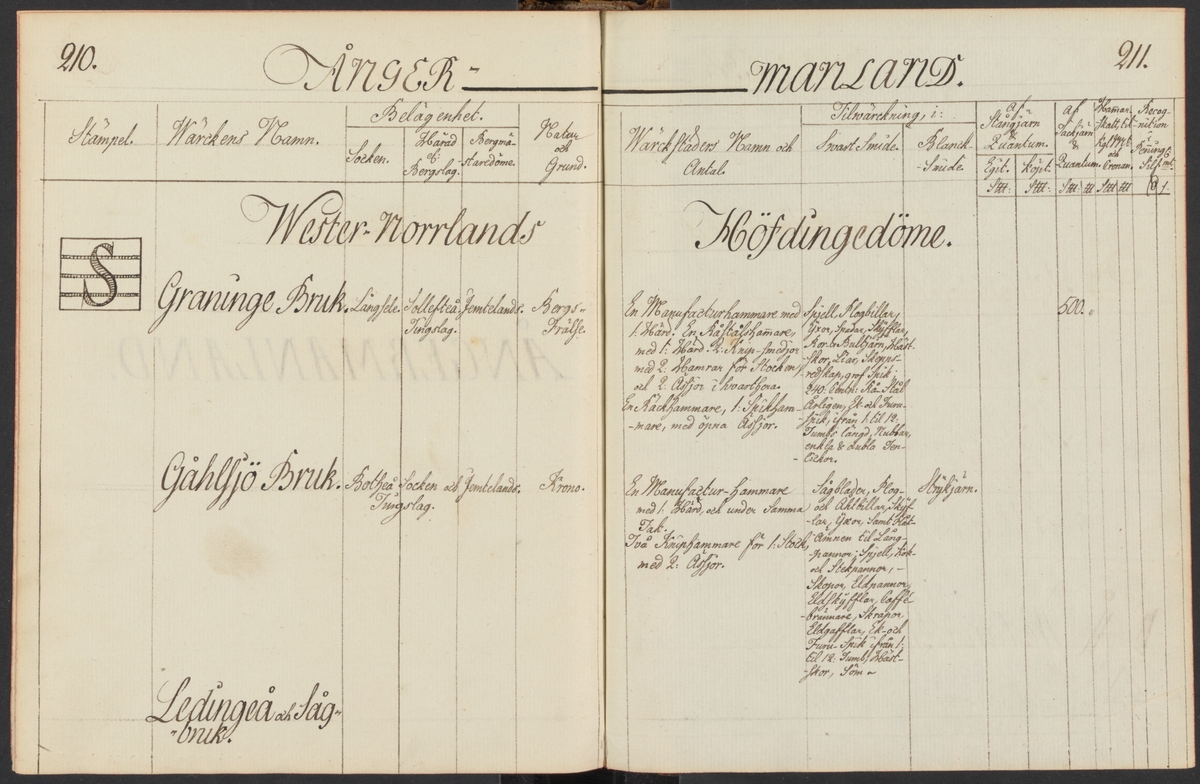 210.
ÅNGER-
MANLAND.
211.
Stämpel.
Wärckens Namn.
Belägenhet.
Socken.
Härad
et:
Bergslag.
Bergmä-
staredöme.
Natur
och
Grund.
Wärckstäders Namn och
Antal.
Tilwärckning, i:
Svart Smide.
Blanck
-Smide.
af
Stångjärn
&
Quantum.
Eget.
Köpt.
af
Tackjärn
&
Quantum.
Hamar
Skatt, til
och
Cronan.
Recog-
nition
Wester-Norrlands
Höfdingedöme.
S
Graninge Bruk.
Långsele.
Sollefteå
Tingslag.
Jemtelands.
Bergs-
Frälse.
En Manufacturhammare med
1. Härd. En Råstålshamare,
med 1: Härd. 2: Knip-smedjor
med 2: Hamrar för Stocken,
och 2: Assjor i hvarthera.
En Räckhammare, 1: Spikham-
-mare, med öpna Assjor.
Spjell, Plogbillar,
Yxor, Spadar, Skyfflar,
Kor- & Bultjärn, Häst-
-skor, Liar, Skepps-
-redskap, grof Spik;
240. Centn: Rå Stål
Årligen, Ek- och Furu-
-spik, ifrån 1: til 12.
Tumbs längd, Nubbar,
enkla & dubla Ten-
-lickor.
500.
Gåhlsjö Bruk.
Botheå Socken och
Tingslag.
Jemtelands.
Krono.
En Manufactur-hammare
med 1: Härd, och under samma
Tak.
Två Kniphammare för 1: Stock,
med 2: Assjor.
Sågblader, Plog-
och Åhlbillar, Skyf-
-lar, Yxor, Samt Plåt-
-ämnen til Lång-
-pannor; Spjell, Kok-
och Stekpannor, -
Skopor, Eldpannor,
Eldskyfflar, Caffé-
-brännare, Skrapor,
Eldgafflar, Ek- och
Furu-Spik ifrån 1:
til 12: Tumb, Häst-
-skor, Söm
Strykjärn.
Ledingeå och Såg-
-bruk.